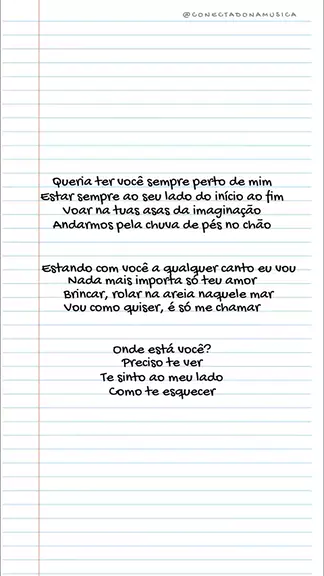 @CONECTADONAMUSICA
Queria ter você sempre perto de mim
Estar sempre ao seu lado do início ao fim
Voar na tuas asas da imaginação
Andarmos pela chuva de pés no chão
Estando com você a qualquer canto eu vou
Nada mais importa só teu amor
Brincar, rolar na areia naquele mar
Vou como quiser, é só me chamar
Onde está você?
Preciso te ver
Te sinto ao meu lado
Como te esquecer